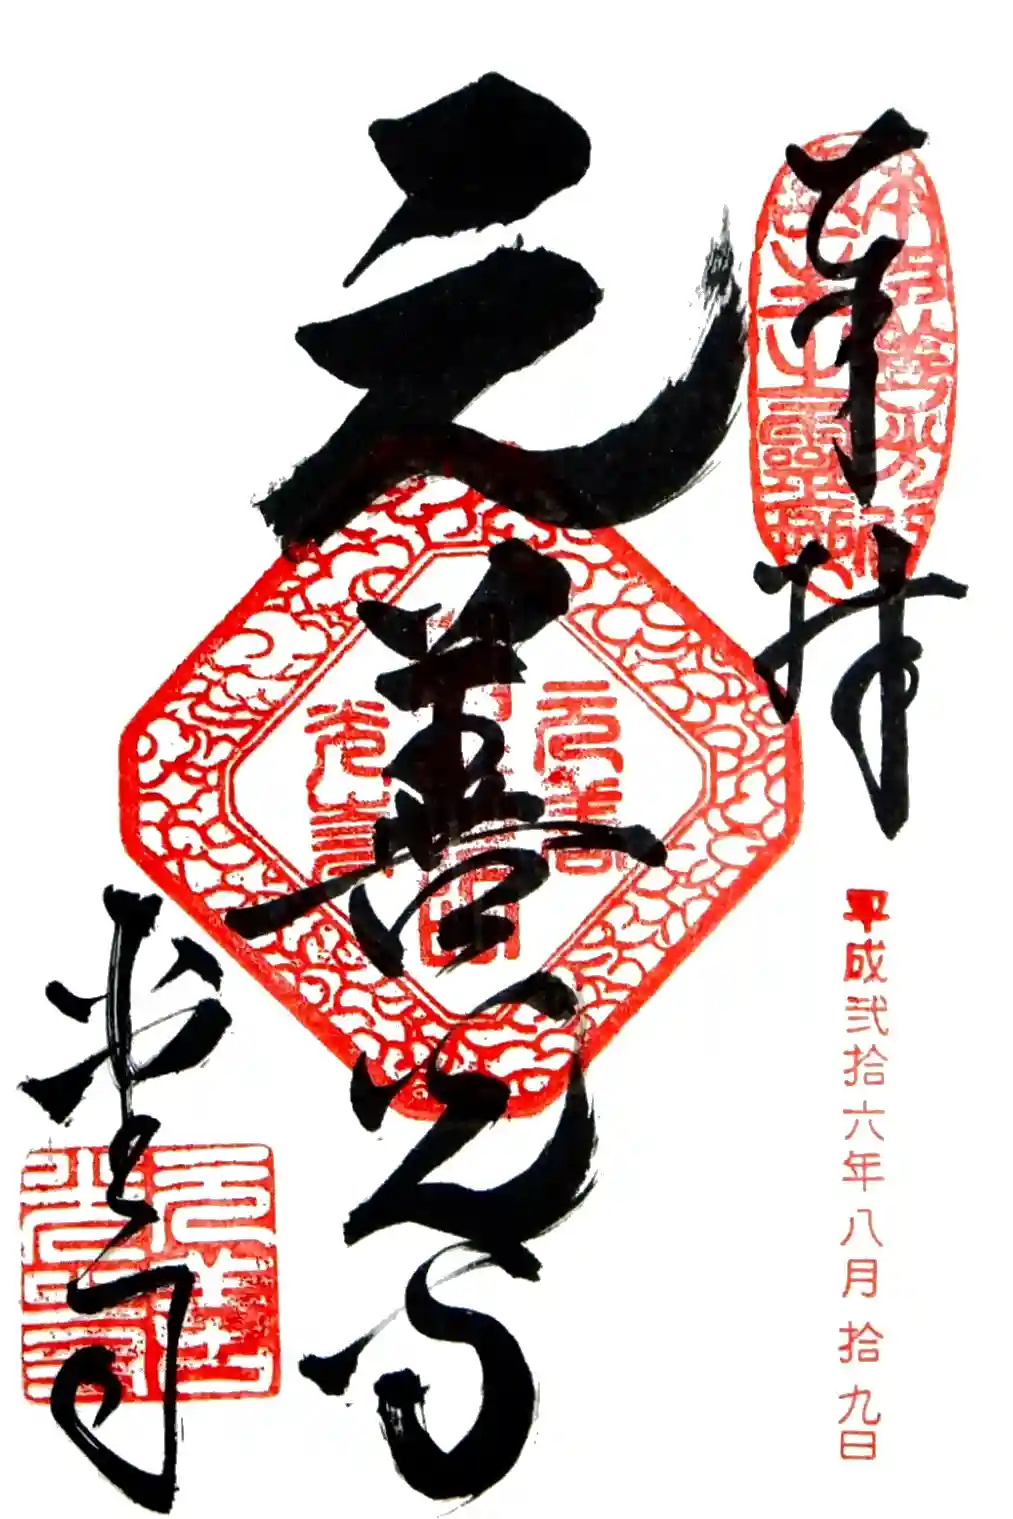 奉拝
平成弐拾六年八月拾九日
元善光寺
堂司
元善光寺